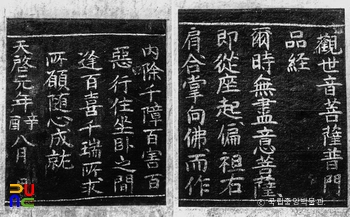 觀世音菩薩普門
品經
爾時無盡意菩薩
即從座起偏袒右
肩合掌向佛而作
内除千障百害百
惡行住坐卧之間
逢百喜千瑞所求
所願隨心成就
天啓元年辛酉八月 日
국립중앙박물관